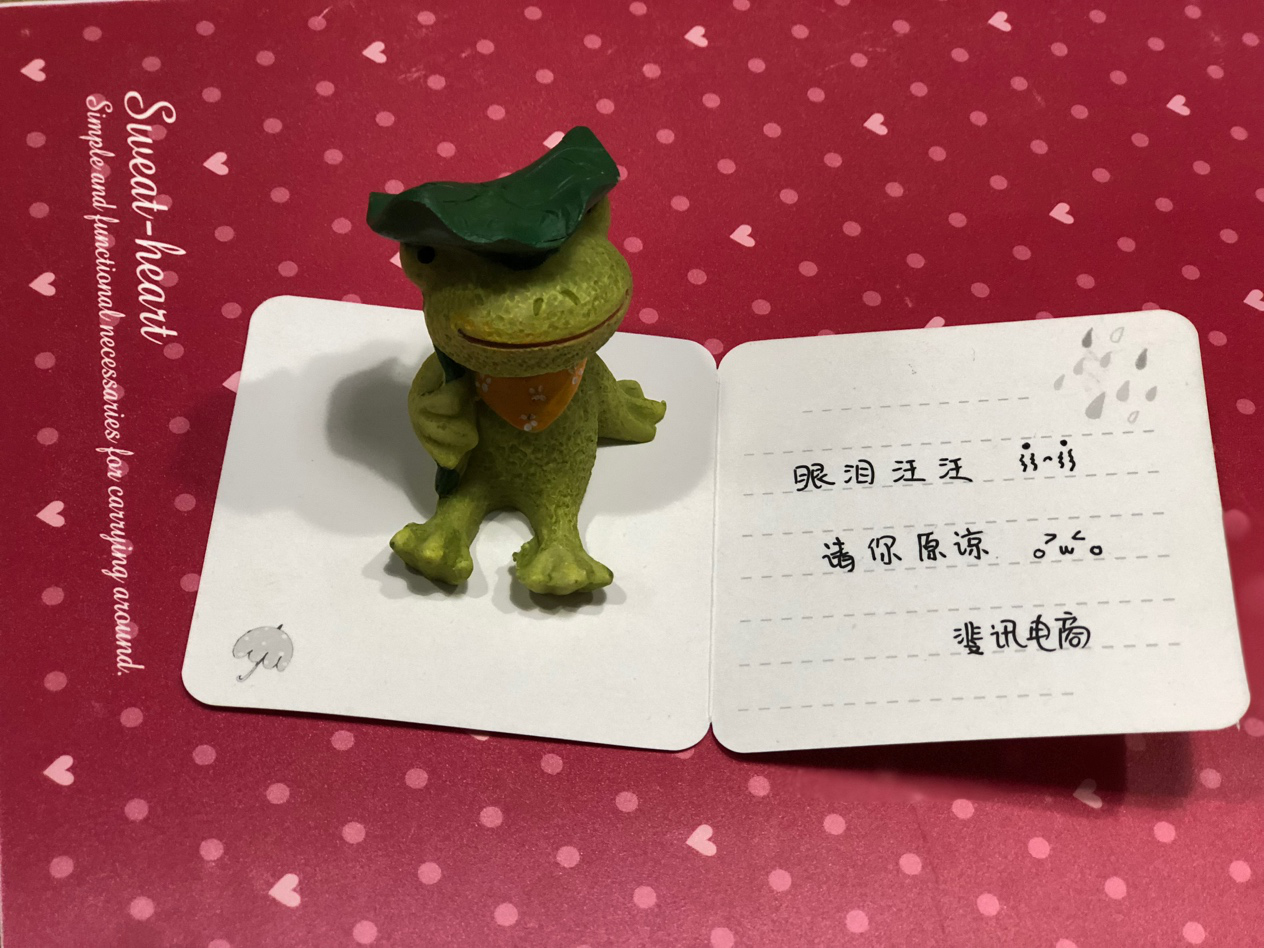 Sweat-heart
Simple and functional necessaries for carrying around.
眼泪汪汪
请你原谅
斐讯电商